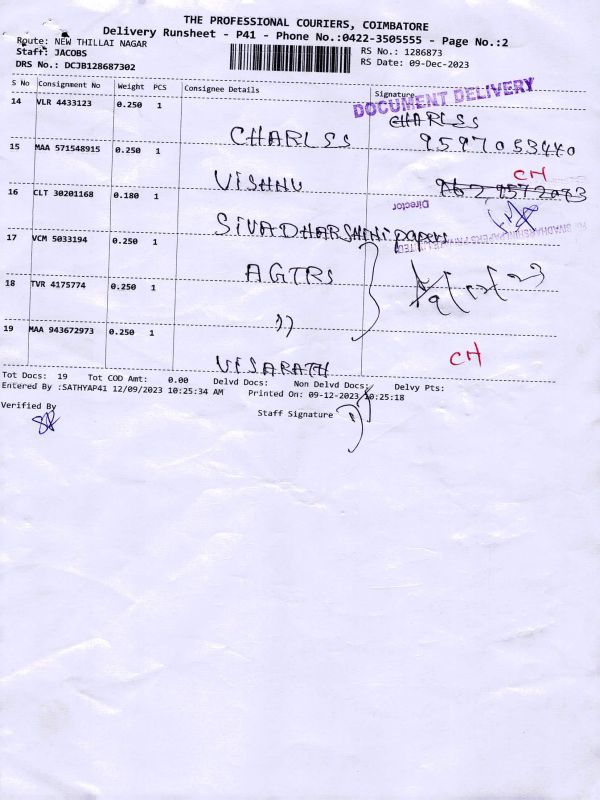 THE PROFESSIONAL COURIERS, COIMBATORE
Delivery Runsheet - P41 - Phone No.:0422-3505555 - Page No.:2
Route: NEW THILLAI NAGAR
RS No.: 1286873
Staff: JACOBS
RS Date: 09-Dec-2023
DRS No.: DCJB128687302
S No Consignment No Weight PCS Consignee Details Signature
DOCUMENT DELIVERY
14 VLR 4433123 0.250 1
CHARLSS CHARLSS
9597053440
15 MAA 571548915 0.250 1
VISHNU CH
16 CLT 30201168 0.180 1
Director
SIVADHARSHINI papers
17 VCM 5033194 0.250 1
AGTRS
18 TVR 4175774 0.250 1
))
19 MAA 943672973 0.250 1
VISARATH CH
Tot Docs: 19 Tot COD Amt: 0.00 Delvd Docs: Non Delvd Docs: Delvy Pts:
Entered By :SATHYAP41 12/09/2023 10:25:34 AM Printed On: 09-12-2023 10:25:18
Verified By
Staff Signature